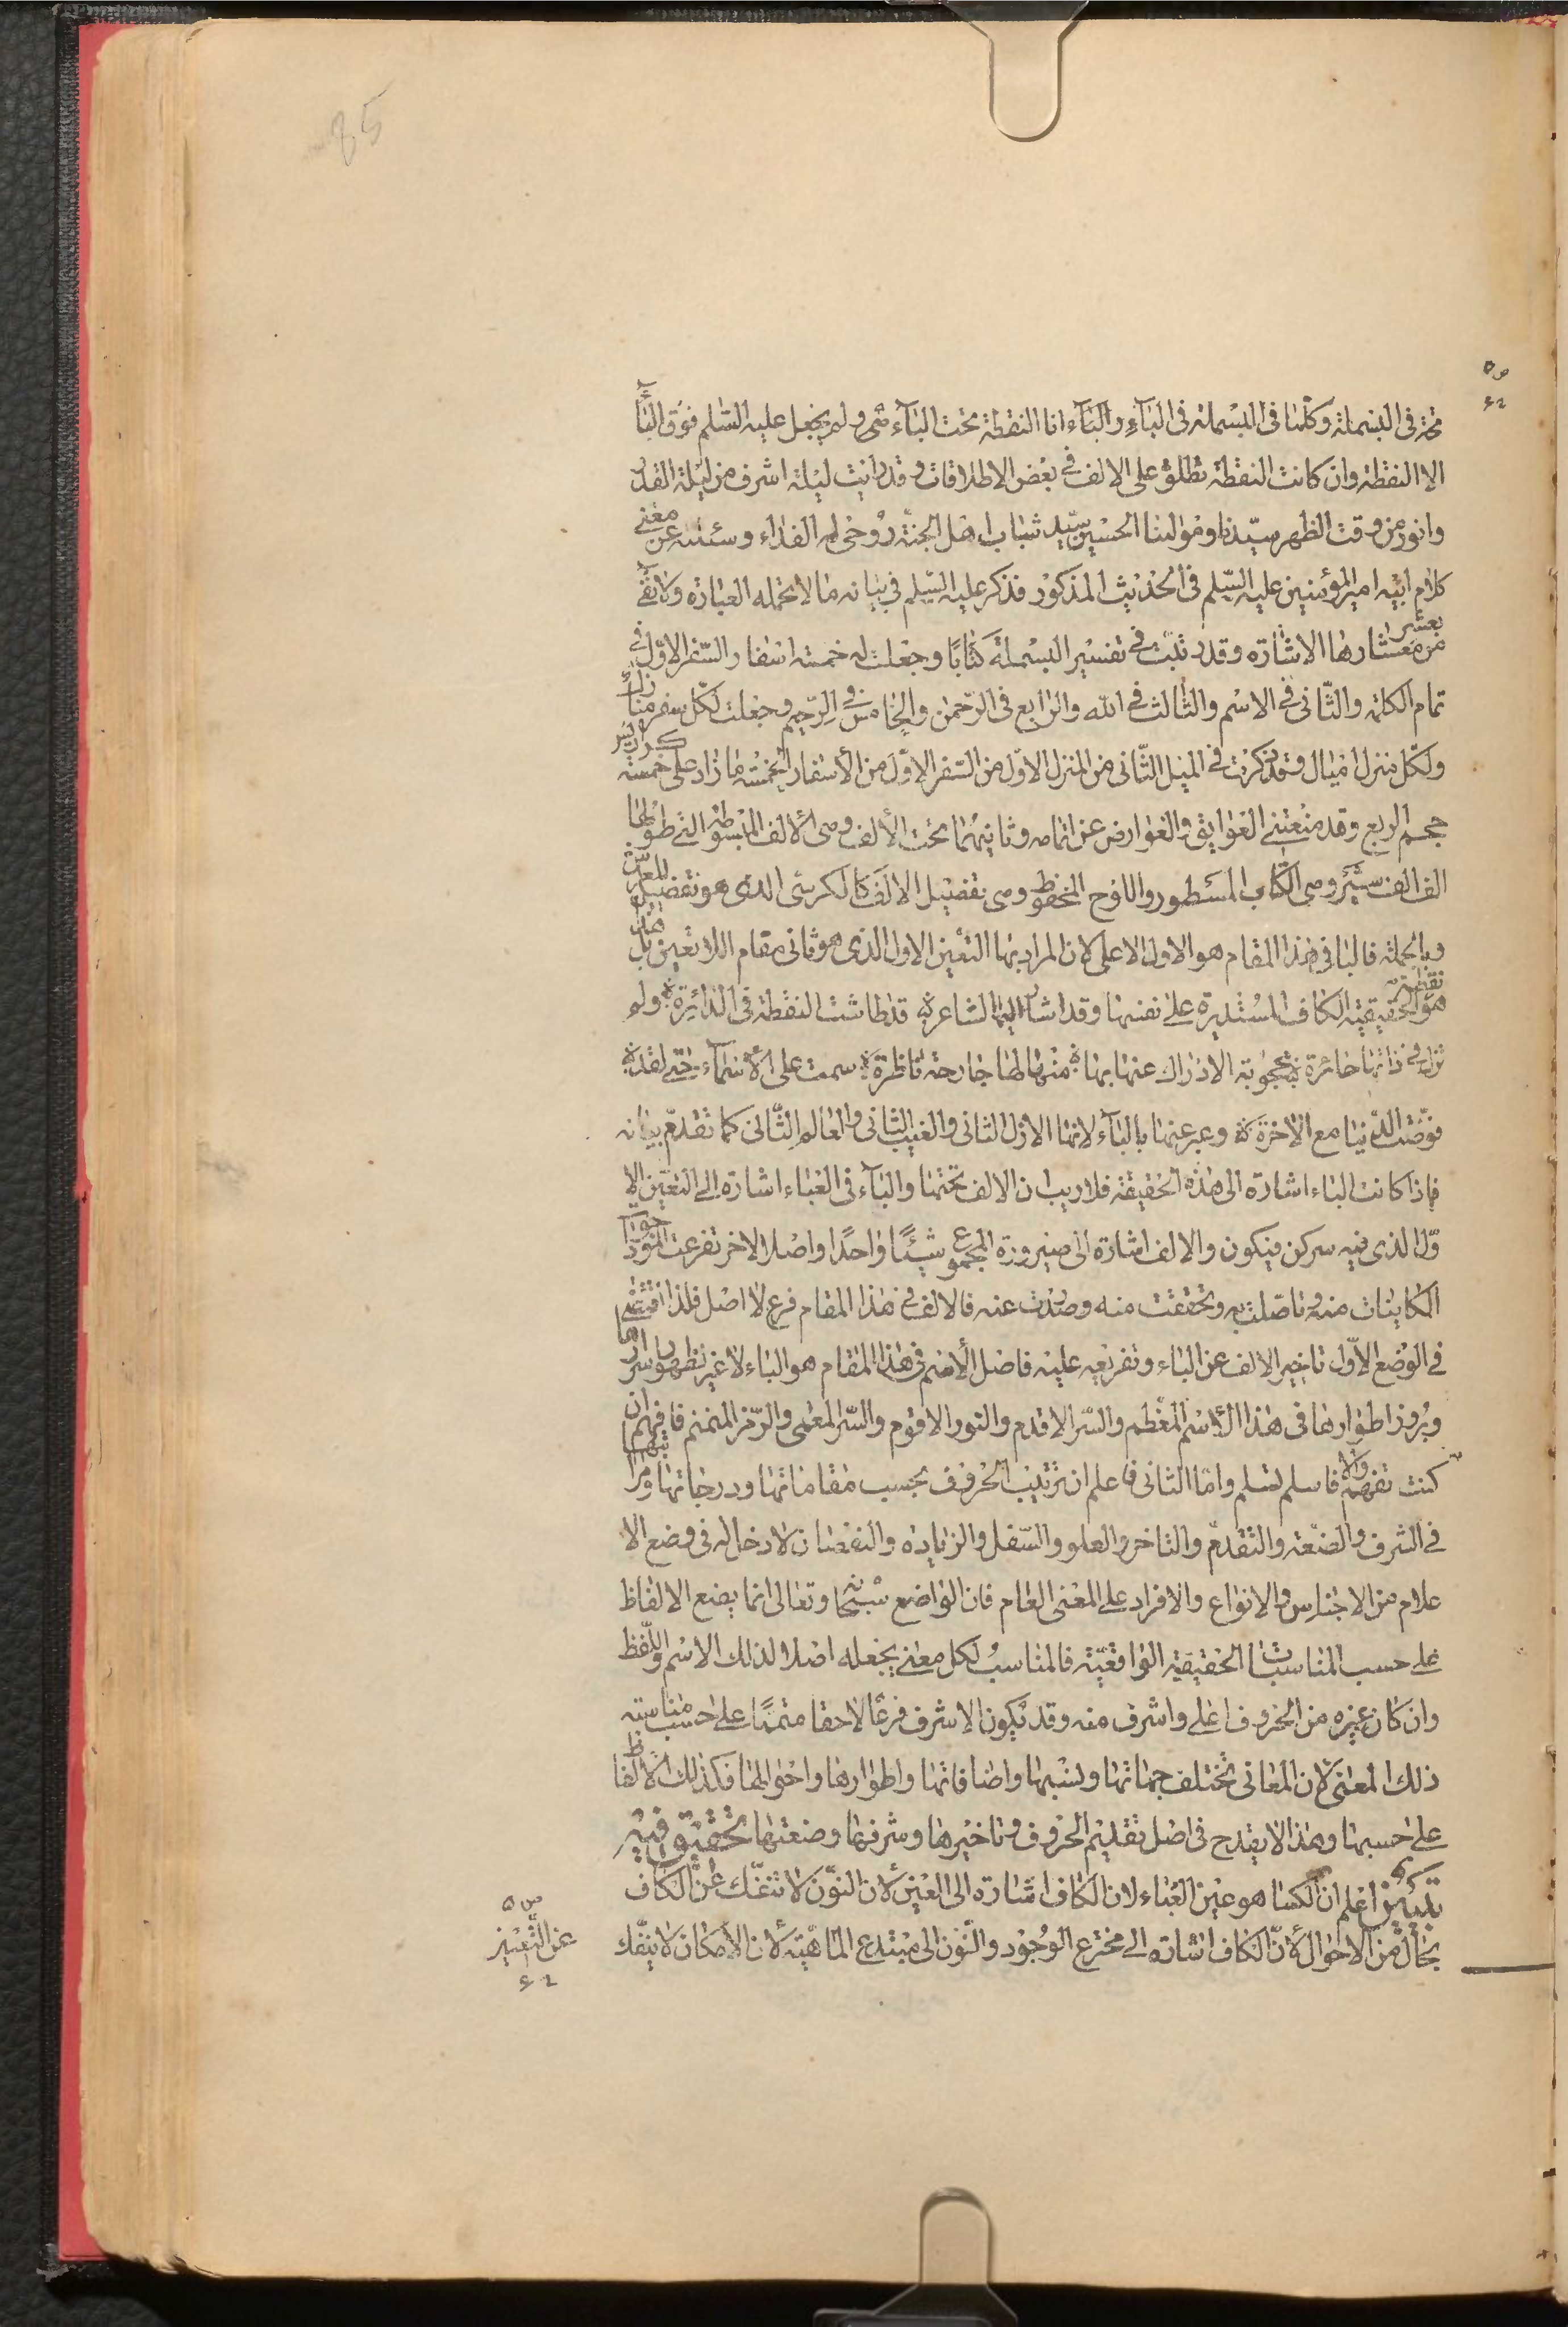 85
تحة في البسملة وكلما في البسملة في الباء والباء انا النقطة تحت الباء ولم يجعل عليه السّلم فوق الباء
الا النقطة وان كانت النقطة تطلق على الالف في بعض الاطلاقات وقد رايت ليلة اشرف من ليلة القدر
وانور من وقت الظهر سيّدنا ومولينا الحسين سيّد شباب اهل الجنّة روحى له الفداء وسئلته عن معنى
كلام ابيه امير المؤمنين عليه السّلم في الحديث المذكور فذكر عليه السّلم في بيانه ما لا تحمله العبارة ولا تفى
بعشر من معشارها الاشارة وقد رتبت في تفسير البسملة كتابًا وجعلت له خمسة اسفار والسّفر الاوّل في
تمام الكلمة والثّانى في الاسم والثّالث في الله والرّابع في الرّحمن والخامس في الرّحيم وجعلت لكلّ سفر منازل
ولكلّ منزل اميال وقد ذكرت في الميل الثّانى من المنزل الاوّل من السّفر الاوّل من الأسفار الخمسة ما زاد على خمسة كراريس
حجم الربع وقد منعتنى العوايق والعوارض عن اتمامه وثانيهما تحت الألف وهى الالف المبسوطة التى طولها
الف الف سنة وهى الكتاب المسطور واللوح المحفوظ وهى تفصيل الالف كالكرسى الذى هو تفصيل للعرش
وبالجملة فالبا في هذا المقام هو الاول الاعلى لان المراد بها التعين الاول الذى هو ثانى مقام اللا تعين بل هذه
هو الحقيقة نقطة الكاف المستديرة على نفسها وقد اشار اليها الشاعر قد طاشت النقطة في الدائرة ولم
تزل في ذاتها حائرة محجوبة الادراك عنها بها منها لها جارحة ناظرة سمت على الأسماء حتى لقد
فوّضت الدّنيا مع الاخرة وعبر عنها بالباء لانها الازل الثانى والغيب الثانى والعالم الثّانى كما تقدّم بيانه
فاذا كانت الباء اشارة الى هذه الحقيقة فلا ريب ان الالف تحتها والباء في العباء اشارة الى التعيّن الا
وّل الذى فيه سر كن فيكون والالف اشارة الى صيرورة المجموع شيئًا واحدًا واصلا لاخر تفرعت الموجودا
الكاينات منه وتاصّلت به وتحققت منه وصدرت عنه فالالف في هذا المقام فرع لا اصل فلذا اقتضى
في الوضع الاوّل تاخير الالف عن الباء وتفريعه عليه فاصل الأسم في هذا المقام هو الباء لا غير لظهور اسرارها
وبروز اطوارها في هذا الاسم المعظم والسّر الاقدم والنور الاقوم والسّر المعمى والرّمز المنمنم فافهم ان
كنت تفهم والا فاسلم تسلم وامّا الثانى فاعلم ان ترتيب الحروف بحسب مقاماتها ودرجاتها ومراتبها
في الشرف والضعة والتقدّم والتاخر والعلو والسّفل والزيادة والنقصان لا دخل له في وضع الا
علام من الاجناس والانواع والافراد على المعنى العام فان الواضع سبحانه وتعالى انما يضع الالفاظ
على حسب المناسبات الحقيقية الواقعيّة فالمناسب لكل معنى يجعله اصلا لذلك الاسم واللّفظ
وان كان غيره من الحروف اعلى واشرف منه وقد يكون الاشرف فرعًا لاحقا متممًا على حسب مناسبته
ذلك المعنى لان المعانى تختلف جهاتها ونسبها واضافاتها واطوارها واحوالها فكذلك الالفاظ
على حسبها وهذا لا يقدح في اصل تقديم الحروف وتاخيرها وشرفها وضعتها تحقيق فيه
تبيين اعلم ان الكسا هو عين العباء لان الكاف اشارة الى العين لأن النّون لا تنفّك عن الكاف
بحال من الاحوال لأن الكاف اشارة الى مخترع الوجود والنّون الى مبتدع المّاهيّة لأن الأمكان لا ينفّك
عن التّعيّن